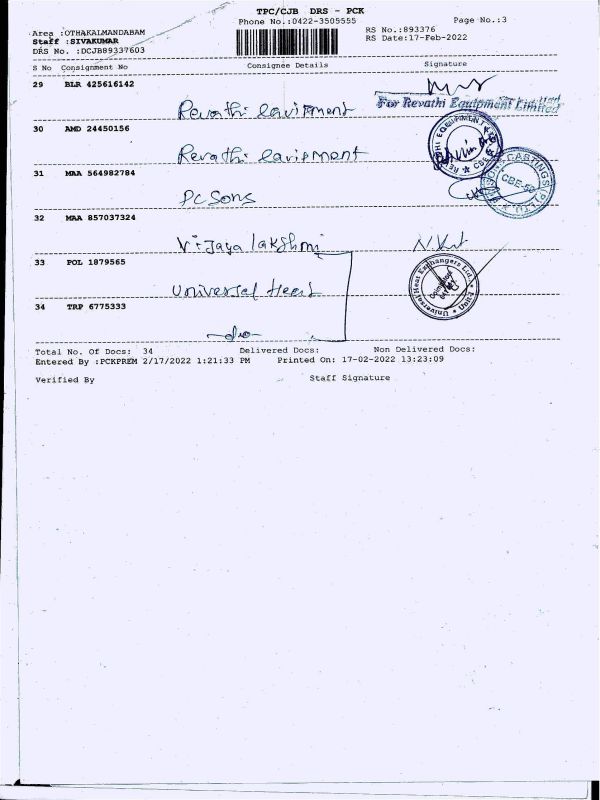 TPC/CJB DRS - PCK
Phone No.:0422-3505555
Page No.:3
Area :OTHAKALMANDABAM
Staff :SIVAKUMAR
DRS No. :DCJB89337603
RS No.:893376
RS Date:17-Feb-2022
S No Consignment No Consignee Details Signature
29 BLR 425616142
Revathi Equipment
For Revathi Equipment Limited
30 AMD 24450156
Revathi Equipment
31 MAA 564982784
PC Sons
CBE-50
32 MAA 857037324
Vijaya lakshmi
33 POL 1879565
Universal Heat
Universal Heat Exchangers Ltd.
34 TRP 6775333
-do-
Total No. Of Docs: 34 Delivered Docs: Non Delivered Docs:
Entered By :PCKPREM 2/17/2022 1:21:33 PM Printed On: 17-02-2022 13:23:09
Verified By Staff Signature